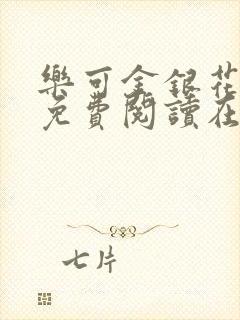 樂可金銀花
免費閱讀在
七片